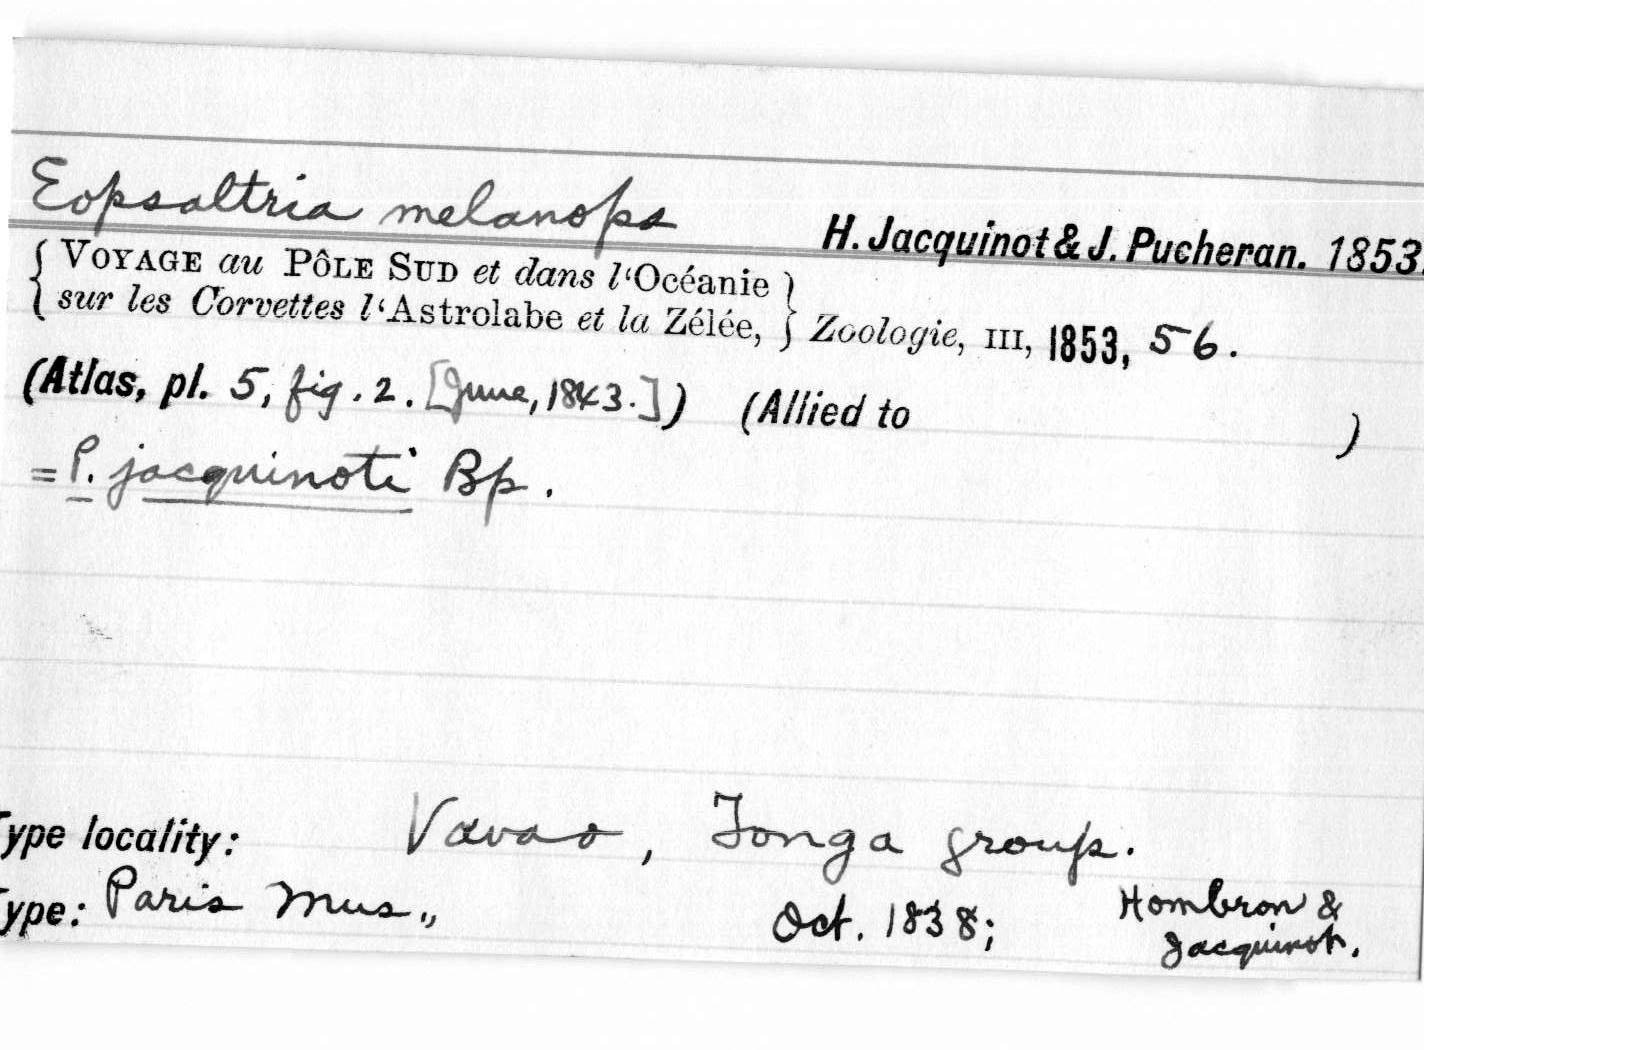 Eopsaltria melanops H. Jacquinot & J. Pucheran. 1853.
{ VOYAGE au PÔLE SUD et dans l‘Océanie }
{ sur les Corvettes l‘Astrolabe et la Zélée, } Zoologie, III, 1853, 56.
(Atlas, pl. 5, fig. 2. [June, 1843.]) (Allied to )
= P. jacquinoti Bp.
Type locality: Vavao, Tonga group.
Type: Paris Mus., Oct. 1838; Hombron &
Jacquinot.